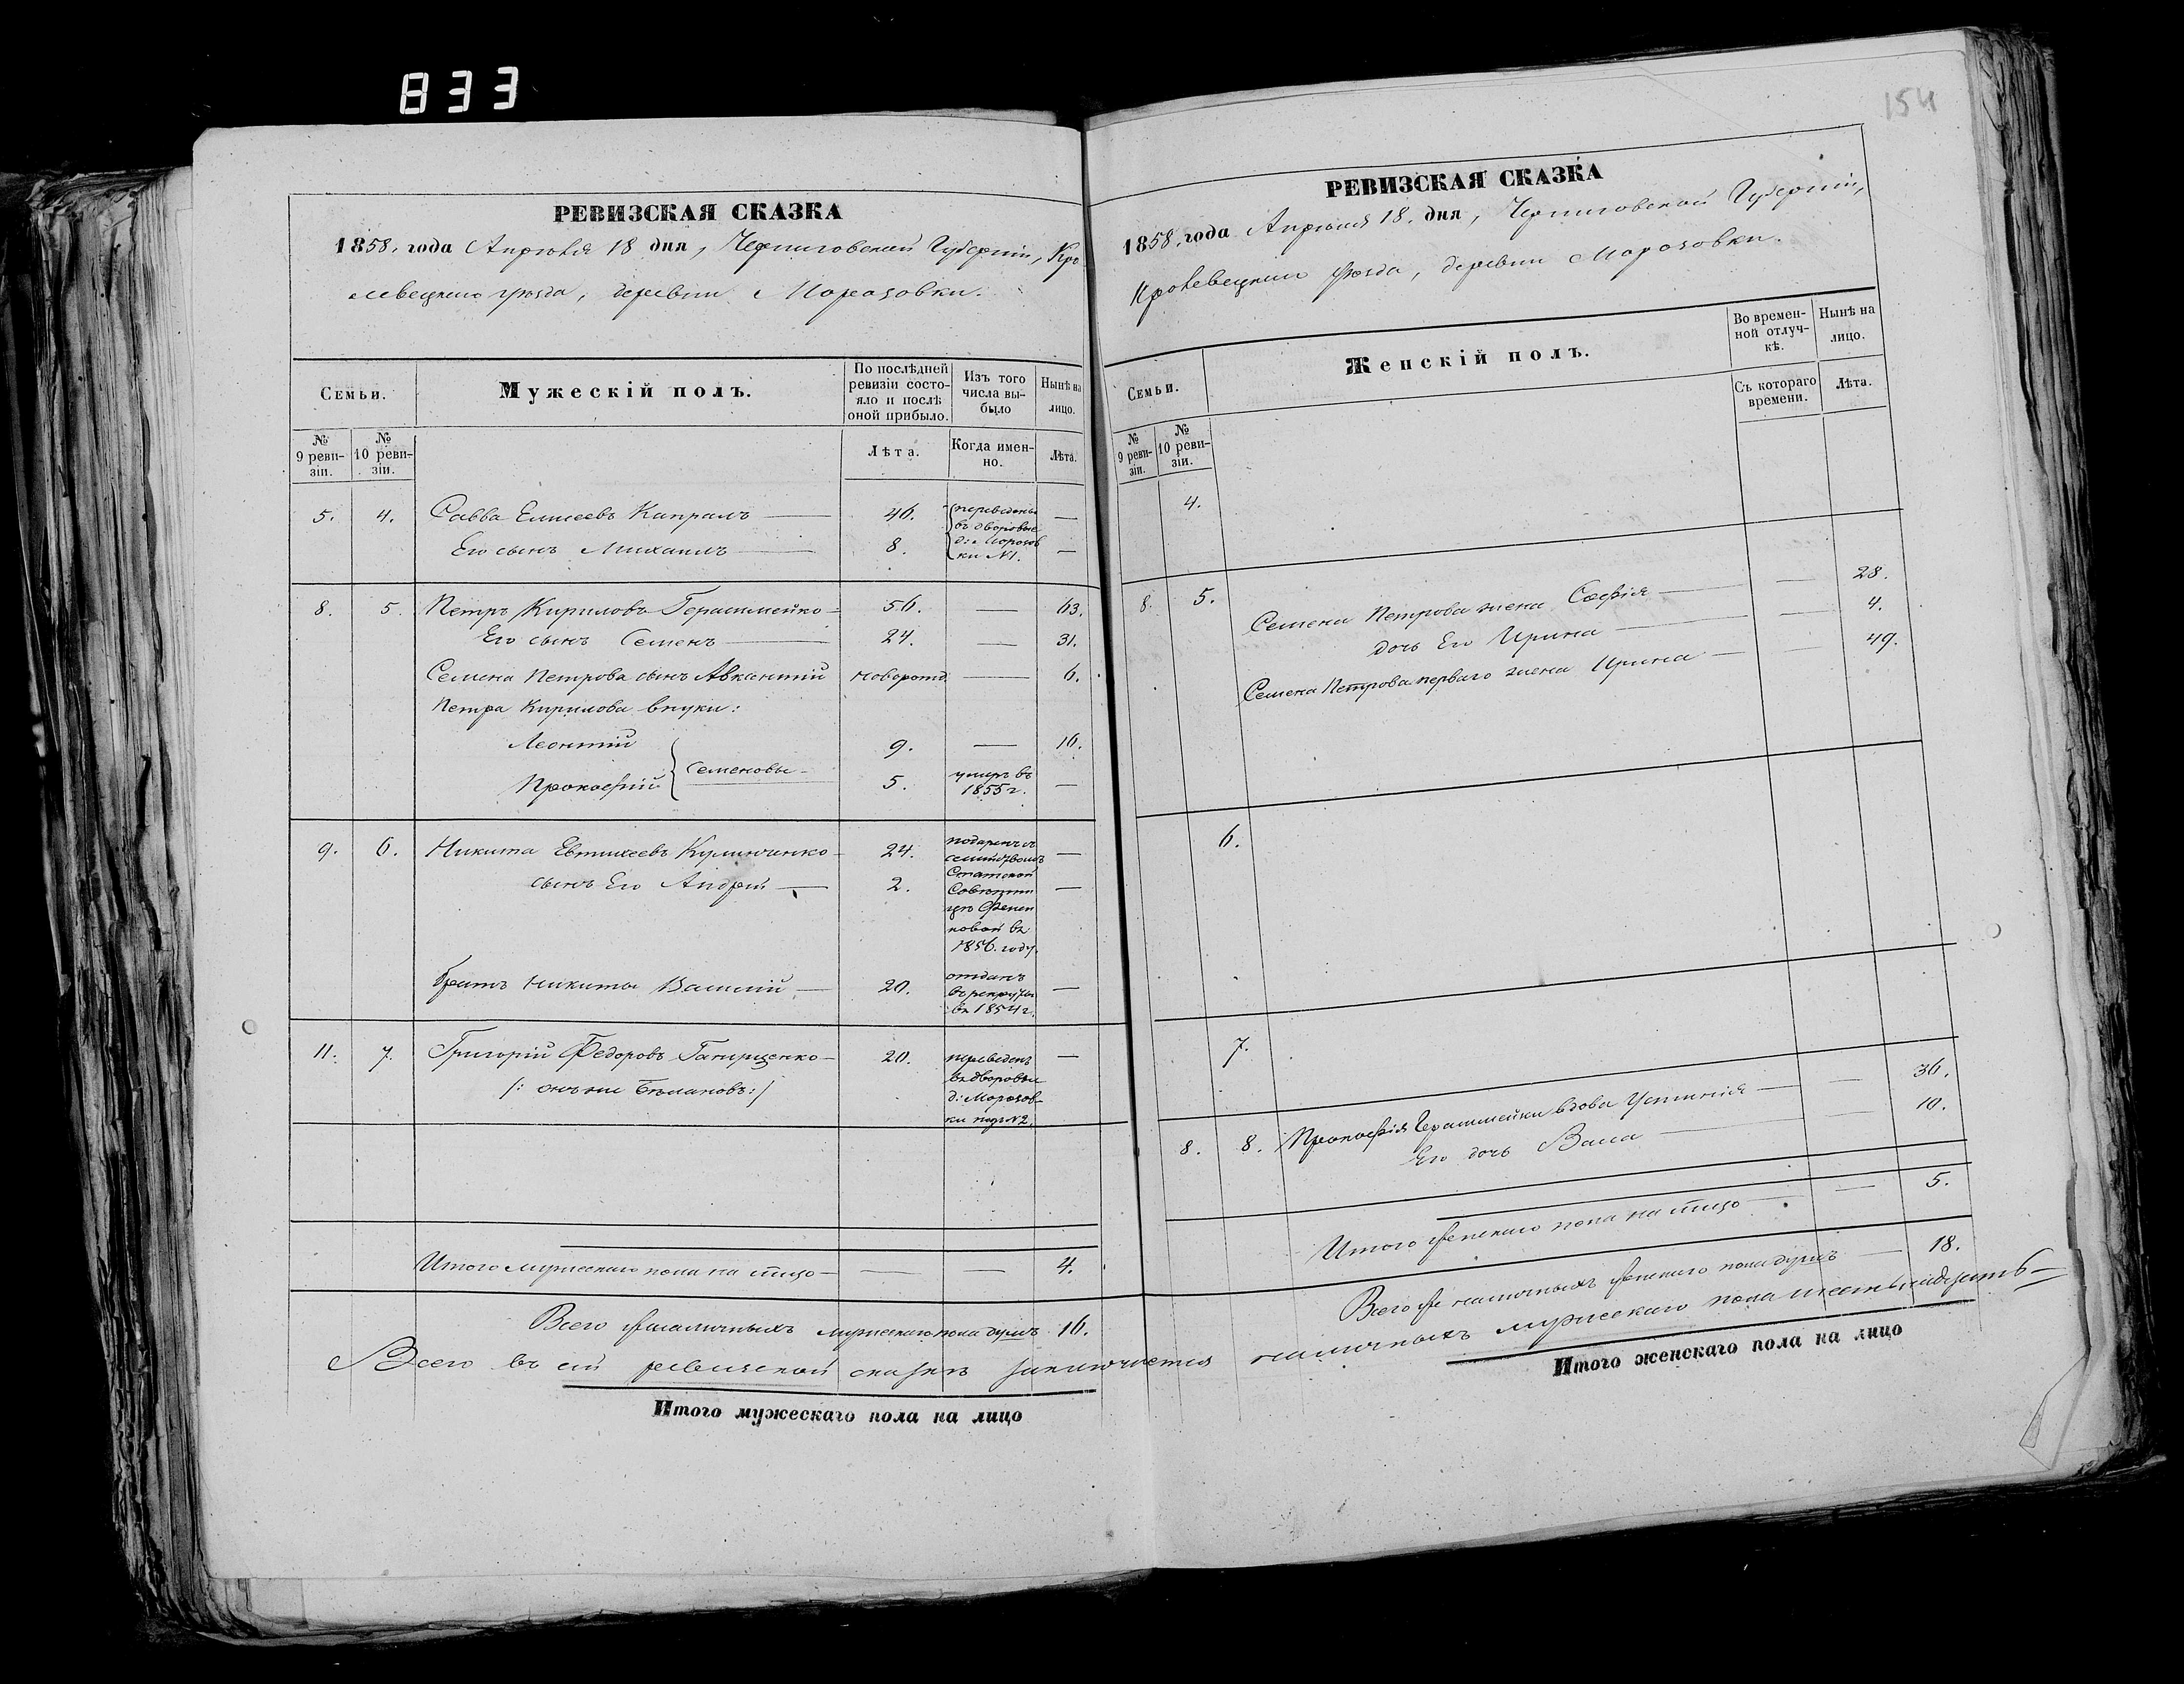 833
154
РЕВИЗСКАЯ СКАЗКА
1858. года Апрѣля 18 дня, Черниговской Губерніи, Кро
левецкаго уѣзда, деревни Морозовки.
Семьи.
Мужескій полъ.
По послѣдней ревизіи состояло и послѣ оной прибыло.
Изъ того числа выбыло
Нынѣ на лицо.
№ 9 ревизіи.
№ 10 ревизіи.
Лѣта.
Когда именно.
Лѣта.
5. 4. Савва Елисеевъ Капралъ — 46. переведены —
въ дворовые
Его сынъ Михаилъ — 8. д: Морозов —
ки №1.
8. 5. Петръ Кириловъ Герасимейко — 56. — 63.
Его сынъ Семенъ — 24. — 31.
Семена Петрова сынъ Авксентій новорожд — 6.
Петра Кирилова внуки:
Леонтій 9. — 16.
Семеновы —
Прокофій 5. умеръ въ 1855 г. —
9. 6. Никита Евтихеевъ Кулинченко — 24. подаренъ съ —
семействомъ
сынъ Его Андрей — 2. Статской —
Совѣтни
цѣ
новой въ
1856. году.
братъ Никиты Василій — 20. отданъ —
въ рекруты
въ 1854 г.
11. 7. Григорій Федоровъ — 20. переведенъ —
/: онъ же :/ въ дворовые
д: Морозов-
ки подъ №2.
Итого мужескаго пола на лицо — — — 4.
Всего наличныхъ мужескаго пола душъ 16.
Всего въ сей ревизской сказкѣ заключается наличныхъ мужескаго пола шестьнадцать —
Итого мужескаго пола на лицо
РЕВИЗСКАЯ СКАЗКА
1858. года Апрѣля 18. дня, Черниговской Губерніи,
Кролевецкаго уѣзда, деревни Морозовки.
Семьи.
Женскій полъ.
Во временной отлучкѣ.
Нынѣ на лицо.
№ 9 ревизіи.
№ 10 ревизіи.
Съ котораго времени.
Лѣта.
4.
8. 5. Семена Петрова жена Софія — — 28.
дочь Его Ирина — — 4.
Семена Петрова перваго жена Ирина — — 49.
6.
7.
8. 8. Прокофія Герасимейки вдова Устинія — — 36.
Его дочь Васса — — 10.
Итого женскаго пола на лицо — — 5.
Всего же наличныхъ женскаго пола душъ — 18.
Итого женскаго пола на лицо